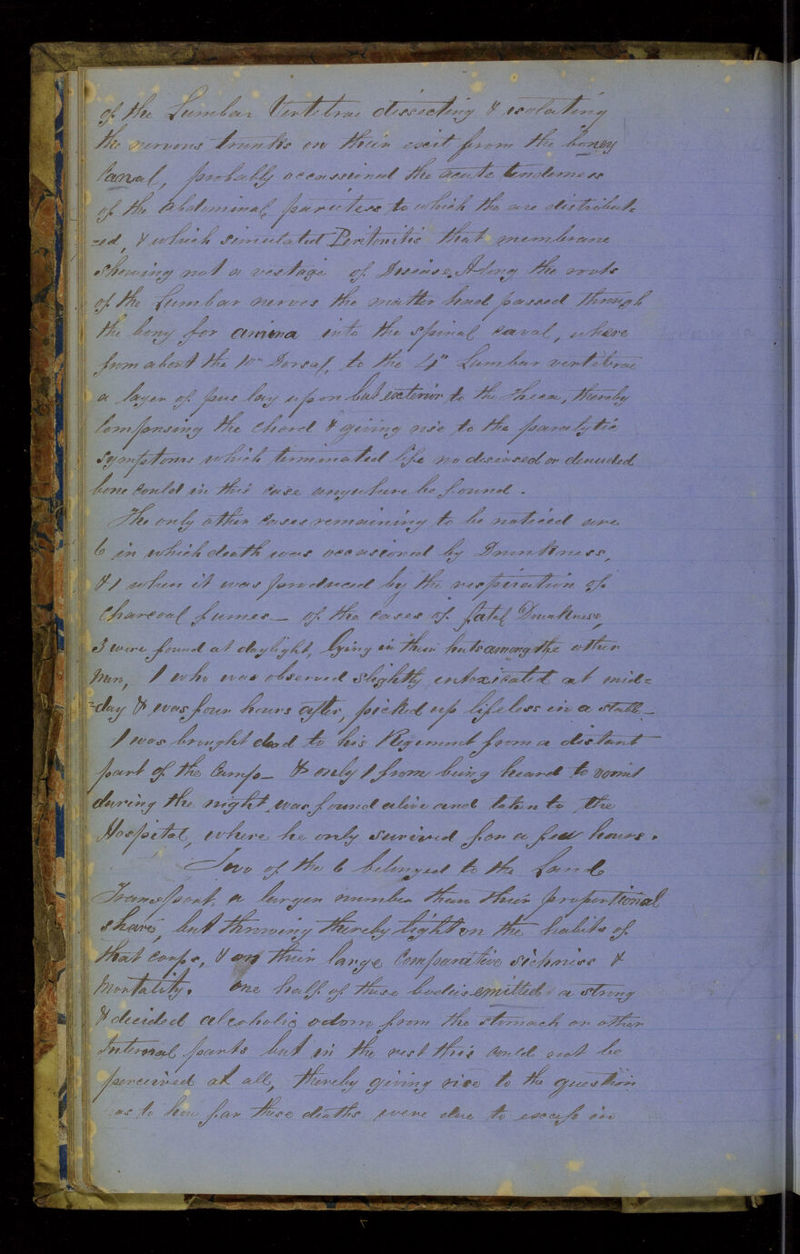 of the Lumbar Vertebrae dissecting & isolating
the nervous trunks on their exit from the boney
Canal, probably occassioned the acute tenderness
of the Abdominal parietese to which the are distribut=
=ed, & which simulated Peritonitis that membrane
shewing not a vestage of Disease. Along the roots
of the Lumbar nerves the matter had passed through
the bony for amina into the spinal caval, where
from about the 10th Dorsal, to the 4" Lumbar vertebrae
a layer of pus lay upon but exterior to the theca, thereby
Compresing the Chord & giving rise to the paralytic
symptoms which terminated life no diseased or denuded
bone could in this case anywhere be found.
The only other cases remaining to be noticed are
6 in which death was occasioned by Drunkness,
& 1 when it was produced by the respiration of
Charcoal fumes — of the cases of fatal Drunkness,
3 were found at daylight, lying in their huts among the other
men, 1 who was observed slightly intoxicated at mid=
=day & was four hours after, picked up lifeless in a stall —
1 was brought dead to his Regiment from a distant
part of the Camp — & only 1 from being heard to vomit
during the night, was found alive and taken to the
Hospital, where he only survived for a few hours.
Two of the 6 belonged to the Land
Transport, a larger number than their proportional
share, but throwing thereby light on the habits of
that corps, & on their large Comparitive sickness &
Mortality. One half of these bodies emitted a strong
& decided alcoholic odom from the stomach or other
Internal parts but in the rest this could not be
perceived at all, thereby giving rise to the question
as to how far these deaths were due to excess in